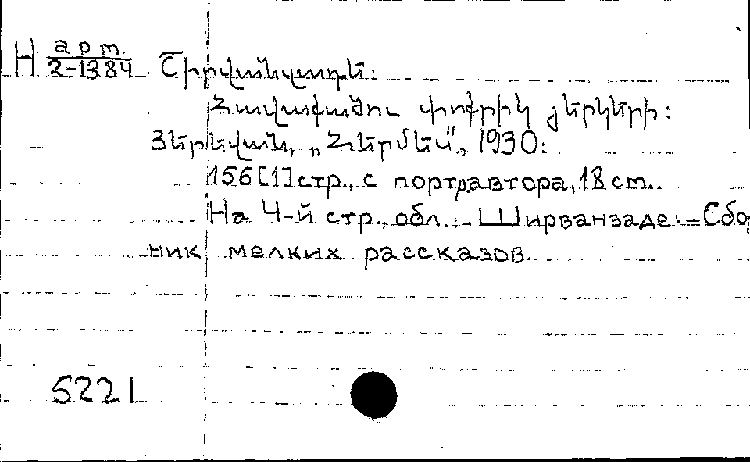 Н арт.
2-1384
Շիրվանզադե.
Հավաքածու փոքրիկ յերկերի:
Յերևան, „Հերմես", 1930:
156[1]стр., с портр. автора, 18 cm.
На 4-й стр., обл.: Ширванзаде.=Сбор
ник мелких рассказов
5221